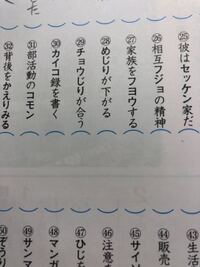 ㉕彼はセッケン家だ
㉖相互フジョの精神
㉗家族をフヨウする
㉘めじりが下がる
㉙チョウじりが合う
㉚カイコ録を書く
㉛部活動のコモン
㉜背後をかえりみる
㊸生活
㊹販売
㊺サイソ
㊻注意す
㊼ひじを
㊽マンガ
㊾サンマ
㊿ぞうり